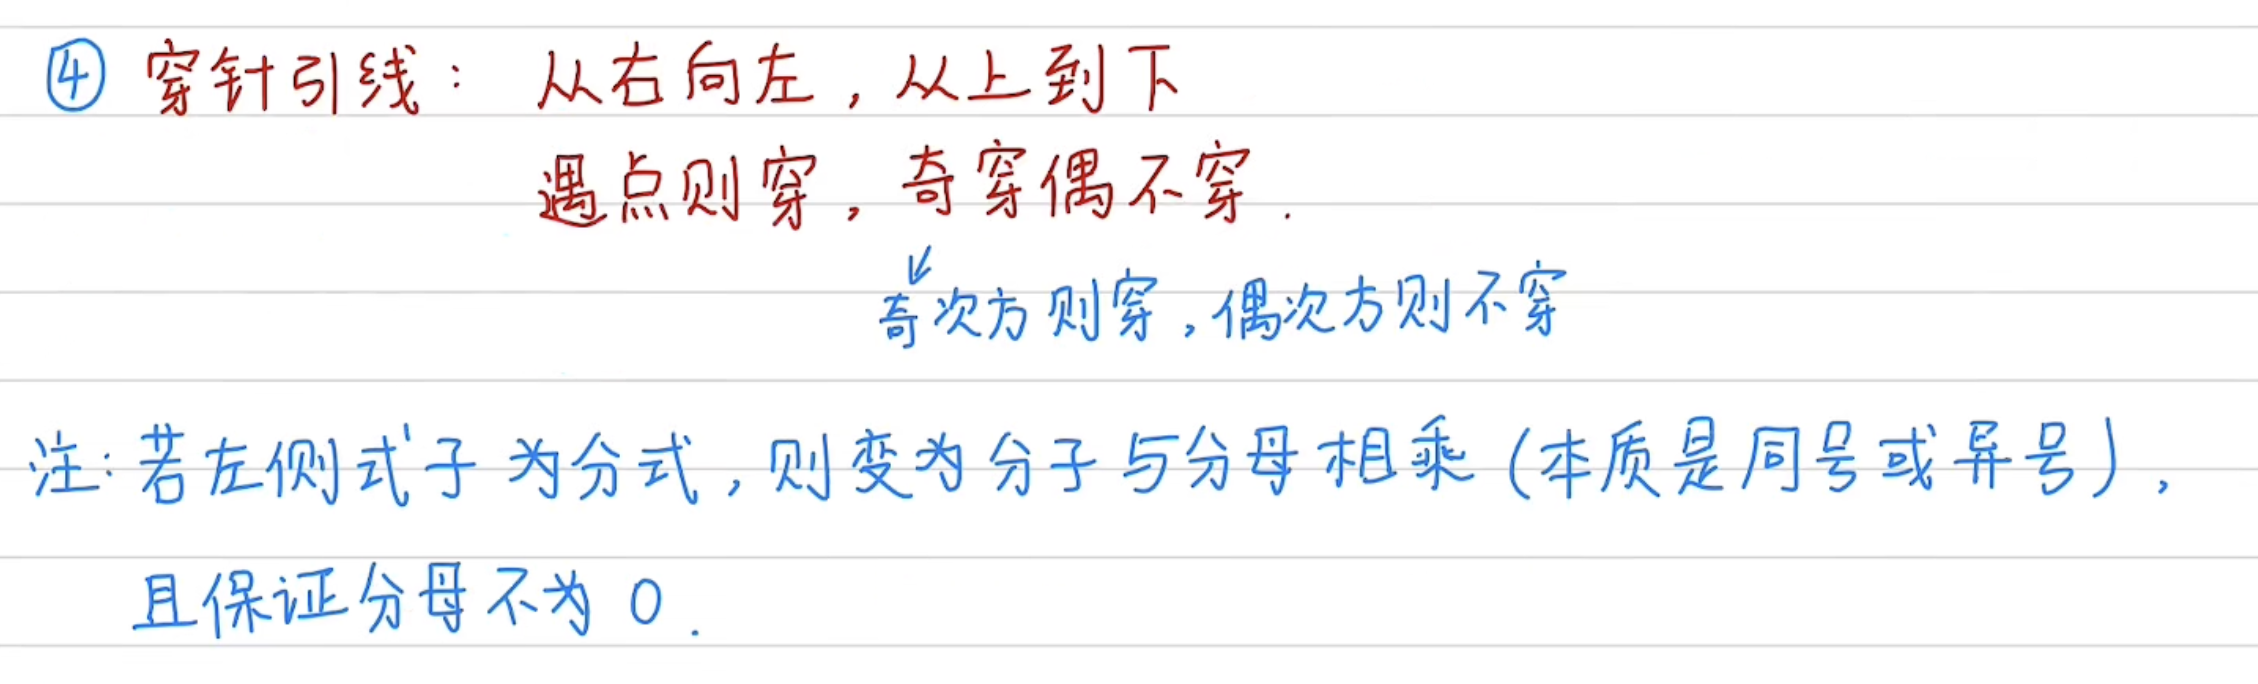 ④ 穿针引线：从右向左，从上到下
遇点则穿，奇穿偶不穿.
↙
奇次方则穿，偶次方则不穿
注：若左侧式子为分式，则变为分子与分母相乘（本质是同号或异号），
且保证分母不为0.